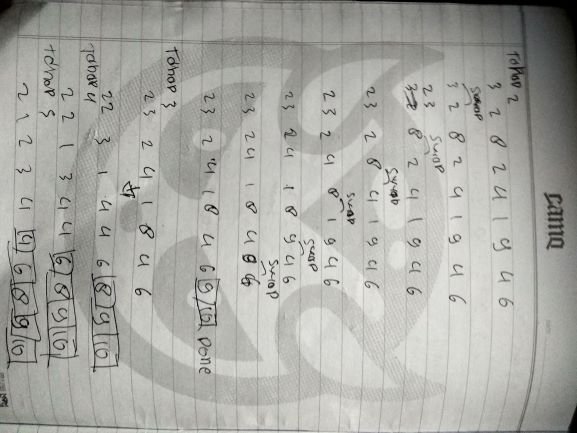 camq
Tahap 2
3 2 8 2 4 1 9 4 6
swap
3 2 8 2 4 1 9 4 6
2 3 swap
8 2 4 1 9 4 6
swap
2 3 2 8 4 1 9 4 6
swap
2 3 2 4 8 1 9 4 6
swap
2 3 2 4 1 8 9 4 6
swap
2 3 2 4 1 8 4 9 6
2 3 2 4 1 8 4 6 9 10 Done
Tahap 3
2 3 2 4 1 8 4 6
2 2 3 1 4 4 6 8 9 10
Tahap 4
2 2 1 3 4 4 6 8 9 10
Tahap 5
2 1 2 3 4 4 6 8 9 10